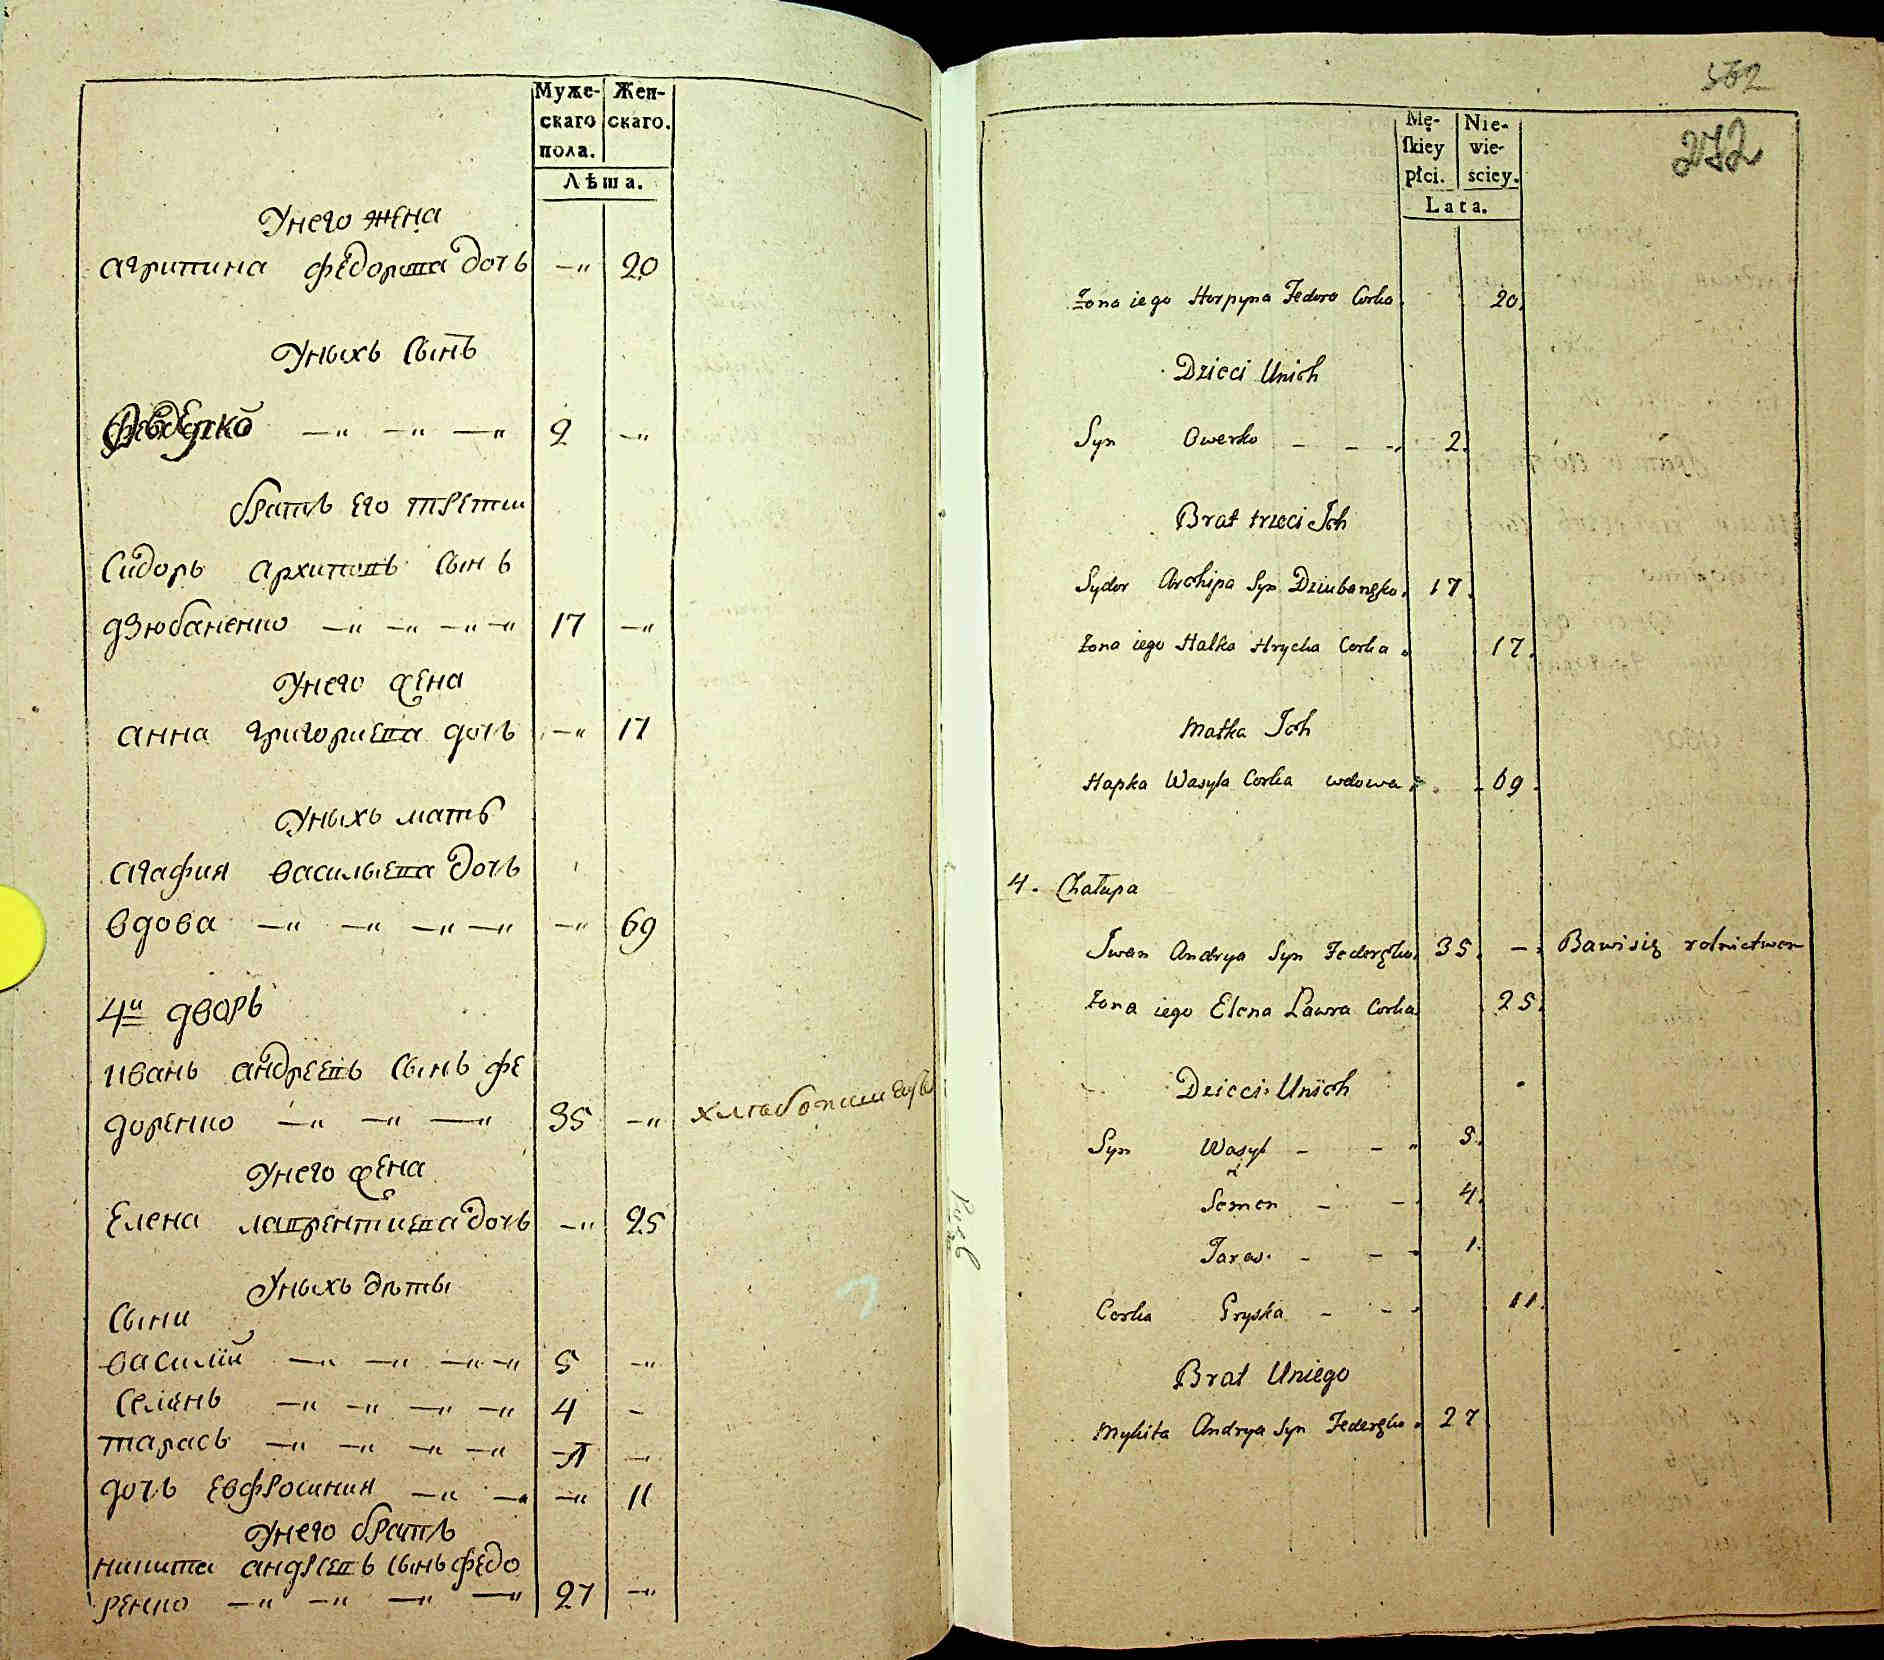 Муже-
скаго
пола.
Жен-
скаго.
Лѣта.
Унего жена
агрипина федорова дочь —„ 20
Уныхъ Сынъ
—„ —„ —„ 2 —„
братъ его трети
Сидоръ архиповъ сынъ
дзюбаненко —„ —„ —„ —„ 17 —„
Унего жена
анна григориева дочь —„ 17
Уныхъ мать
агафия васильева дочь
вдова —„ —„ —„ —„ —„ 69
4й дворъ
иванъ андреевъ сынъ фе
доренко —„ —„ —„ 35 —„
Унего жена
Елена лаврентиева дочь —„ 25
Уныхъ дѣты
Сыни
василий —„ —„ —„ —„ 5 —„
Семенъ —„ —„ —„ —„ 4 –
тарасъ —„ —„ —„ —„ —
дочь Евфросиния —„ —„ —„ 11
Унего братъ
никита андреевъ сынъ федо
ренко —„ —„ —„ —„ 27 —„
502
272
Mę-
ſkiey
płci.
Nie-
wie-
sciey.
Lata.
Żona iego Horpyna Fedora Corka. 20.
Dzieci Unich
Syn Owerko – – –. 2.
Brat trzeci Ich
Sydor Archipa Syn Dziubanęko. 17.
Żona iego Halka Hrycka Corka. 17.
Matka Ich
Hapka Wasyla Corka wdowa. 69.
4. Chałupa
Iwan Andrya Syn Federęko. 35. –. Bawi się rolnictwem
Żona iego Elena Ławra Corka 25.
Dzieci Unich
Syn Wasyl – – „ 5.
Semen – – 4.
Taras. – – 1.
Corka Pryska – – 11.
Brat Uniego
Mykita Andrya Syn Federęko. 27